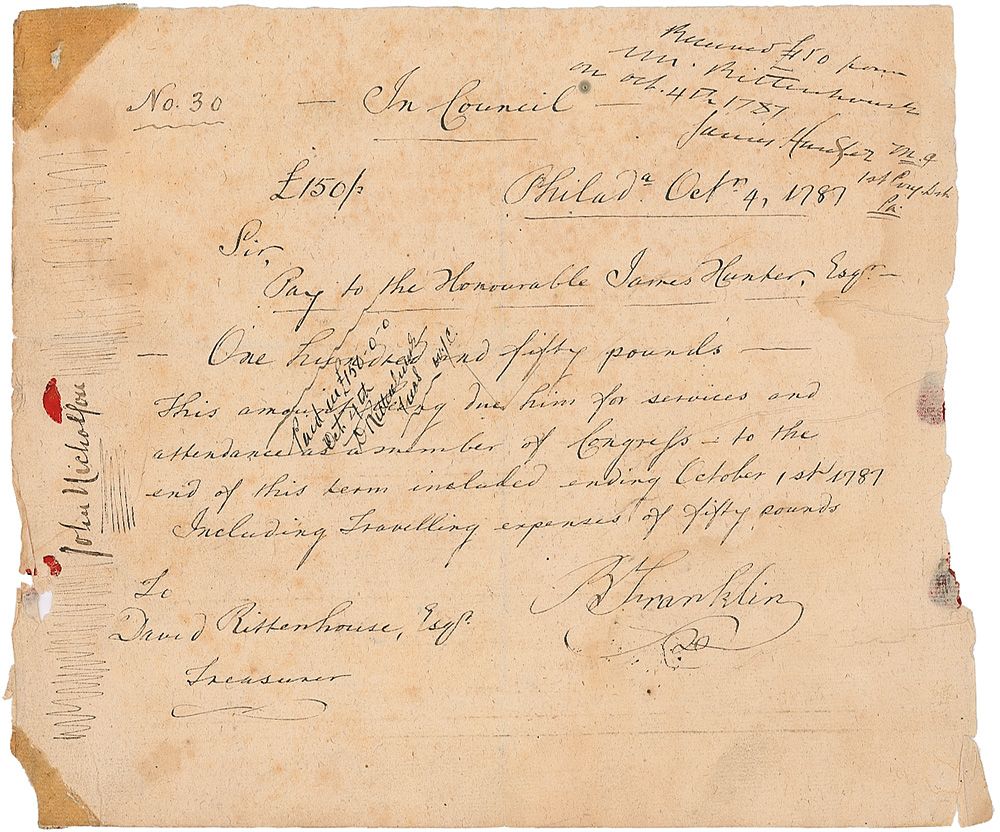 Received £150 from
Mr. Rittenhouse
on Oct. 4th 1787
James Hunter M.C.
1st Cong. Dist.
Pa
No. 30 — In Council —
£150/
Philada. Octr. 4, 1787
Sir,
Pay to the Honourable James Hunter, Esqr. —
— One hundred and fifty pounds —
This amount being due him for services and
attendance as a member of Congress — to the
end of this term included ending October 1st 1787
Including Travelling expenses of fifty pounds
Paid in £150.0.0
Oct. 4th
D Rittenhouse
Treas
John Nicholson
B Franklin
To
David Rittenhouse, Esqr.
Treasurer